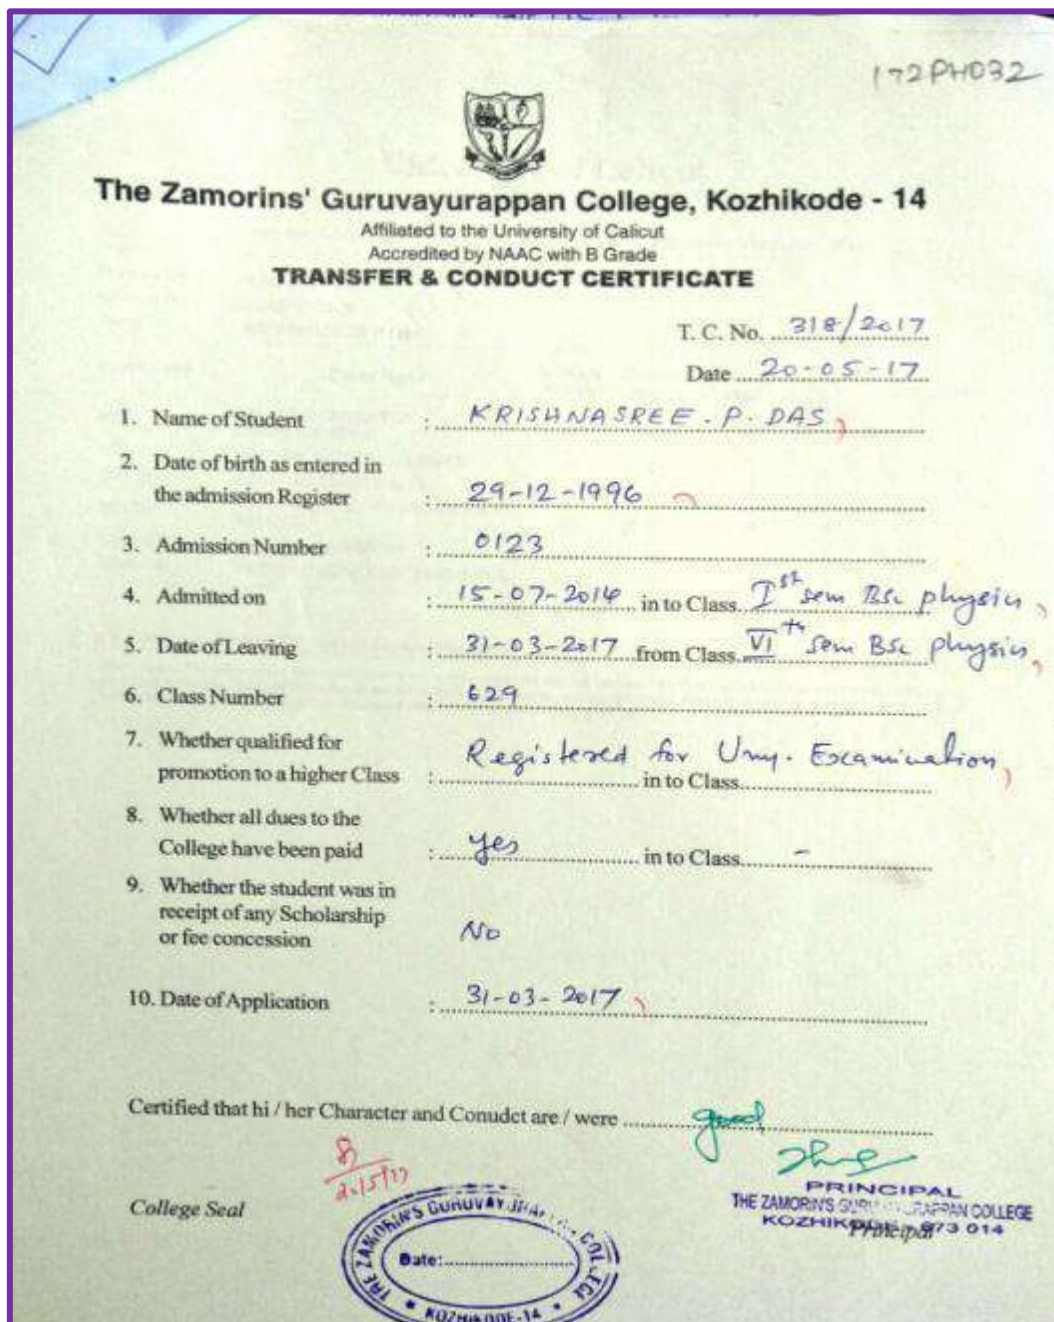 172PH032
The Zamorins' Guruvayurappan College, Kozhikode - 14
Affiliated to the University of Calicut
Accredited by NAAC with B Grade
TRANSFER & CONDUCT CERTIFICATE
T. C. No. 318/2017
Date 20-05-17
1. Name of Student : KRISHNASREE. P. DAS
2. Date of birth as entered in
the admission Register : 29-12-1996
3. Admission Number : 0123
4. Admitted on : 15-07-2014 in to Class Ist sem BSc physics
5. Date of Leaving : 31-03-2017 from Class VIth sem BSc physics
6. Class Number : 629
7. Whether qualified for
Registered for Uny. Examination
promotion to a higher Class : in to Class
8. Whether all dues to the
College have been paid : yes in to Class -
9. Whether the student was in
receipt of any Scholarship
or fee concession No
10. Date of Application : 31-03-2017
Certified that hi / her Character and Conudct are / were good
College Seal
PRINCIPAL
THE ZAMORIN'S GURUVAYURAPPAN COLLEGE
KOZHIKODE - 673 014
Principal
THE ZAMORIN'S GURUVAYURAPPAN COLLEGE
Date:
KOZHIKODE-14